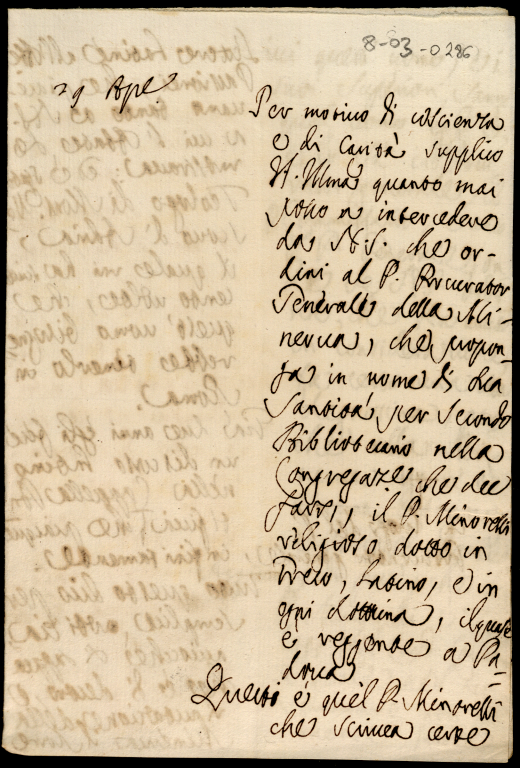 8-03-0286
29 Aple
Per motivo di coscienza
e di Carità supplico
V. Illma quanto mai
posso a intercedere
da N. S. che or-
dini al P. Procurator
Generale della Mi-
nerva, che propon-
ga in nome di sua
Santità per secondo
Bibliotecario nella
Congregaze che dee
farsi, il P. Minorelli
religioso dotto in
Greco, Latino, e in
ogni dottrina, il quale
è reggente a Pa-
dova
Questi è quel P. Minorelli
che scrivea certe